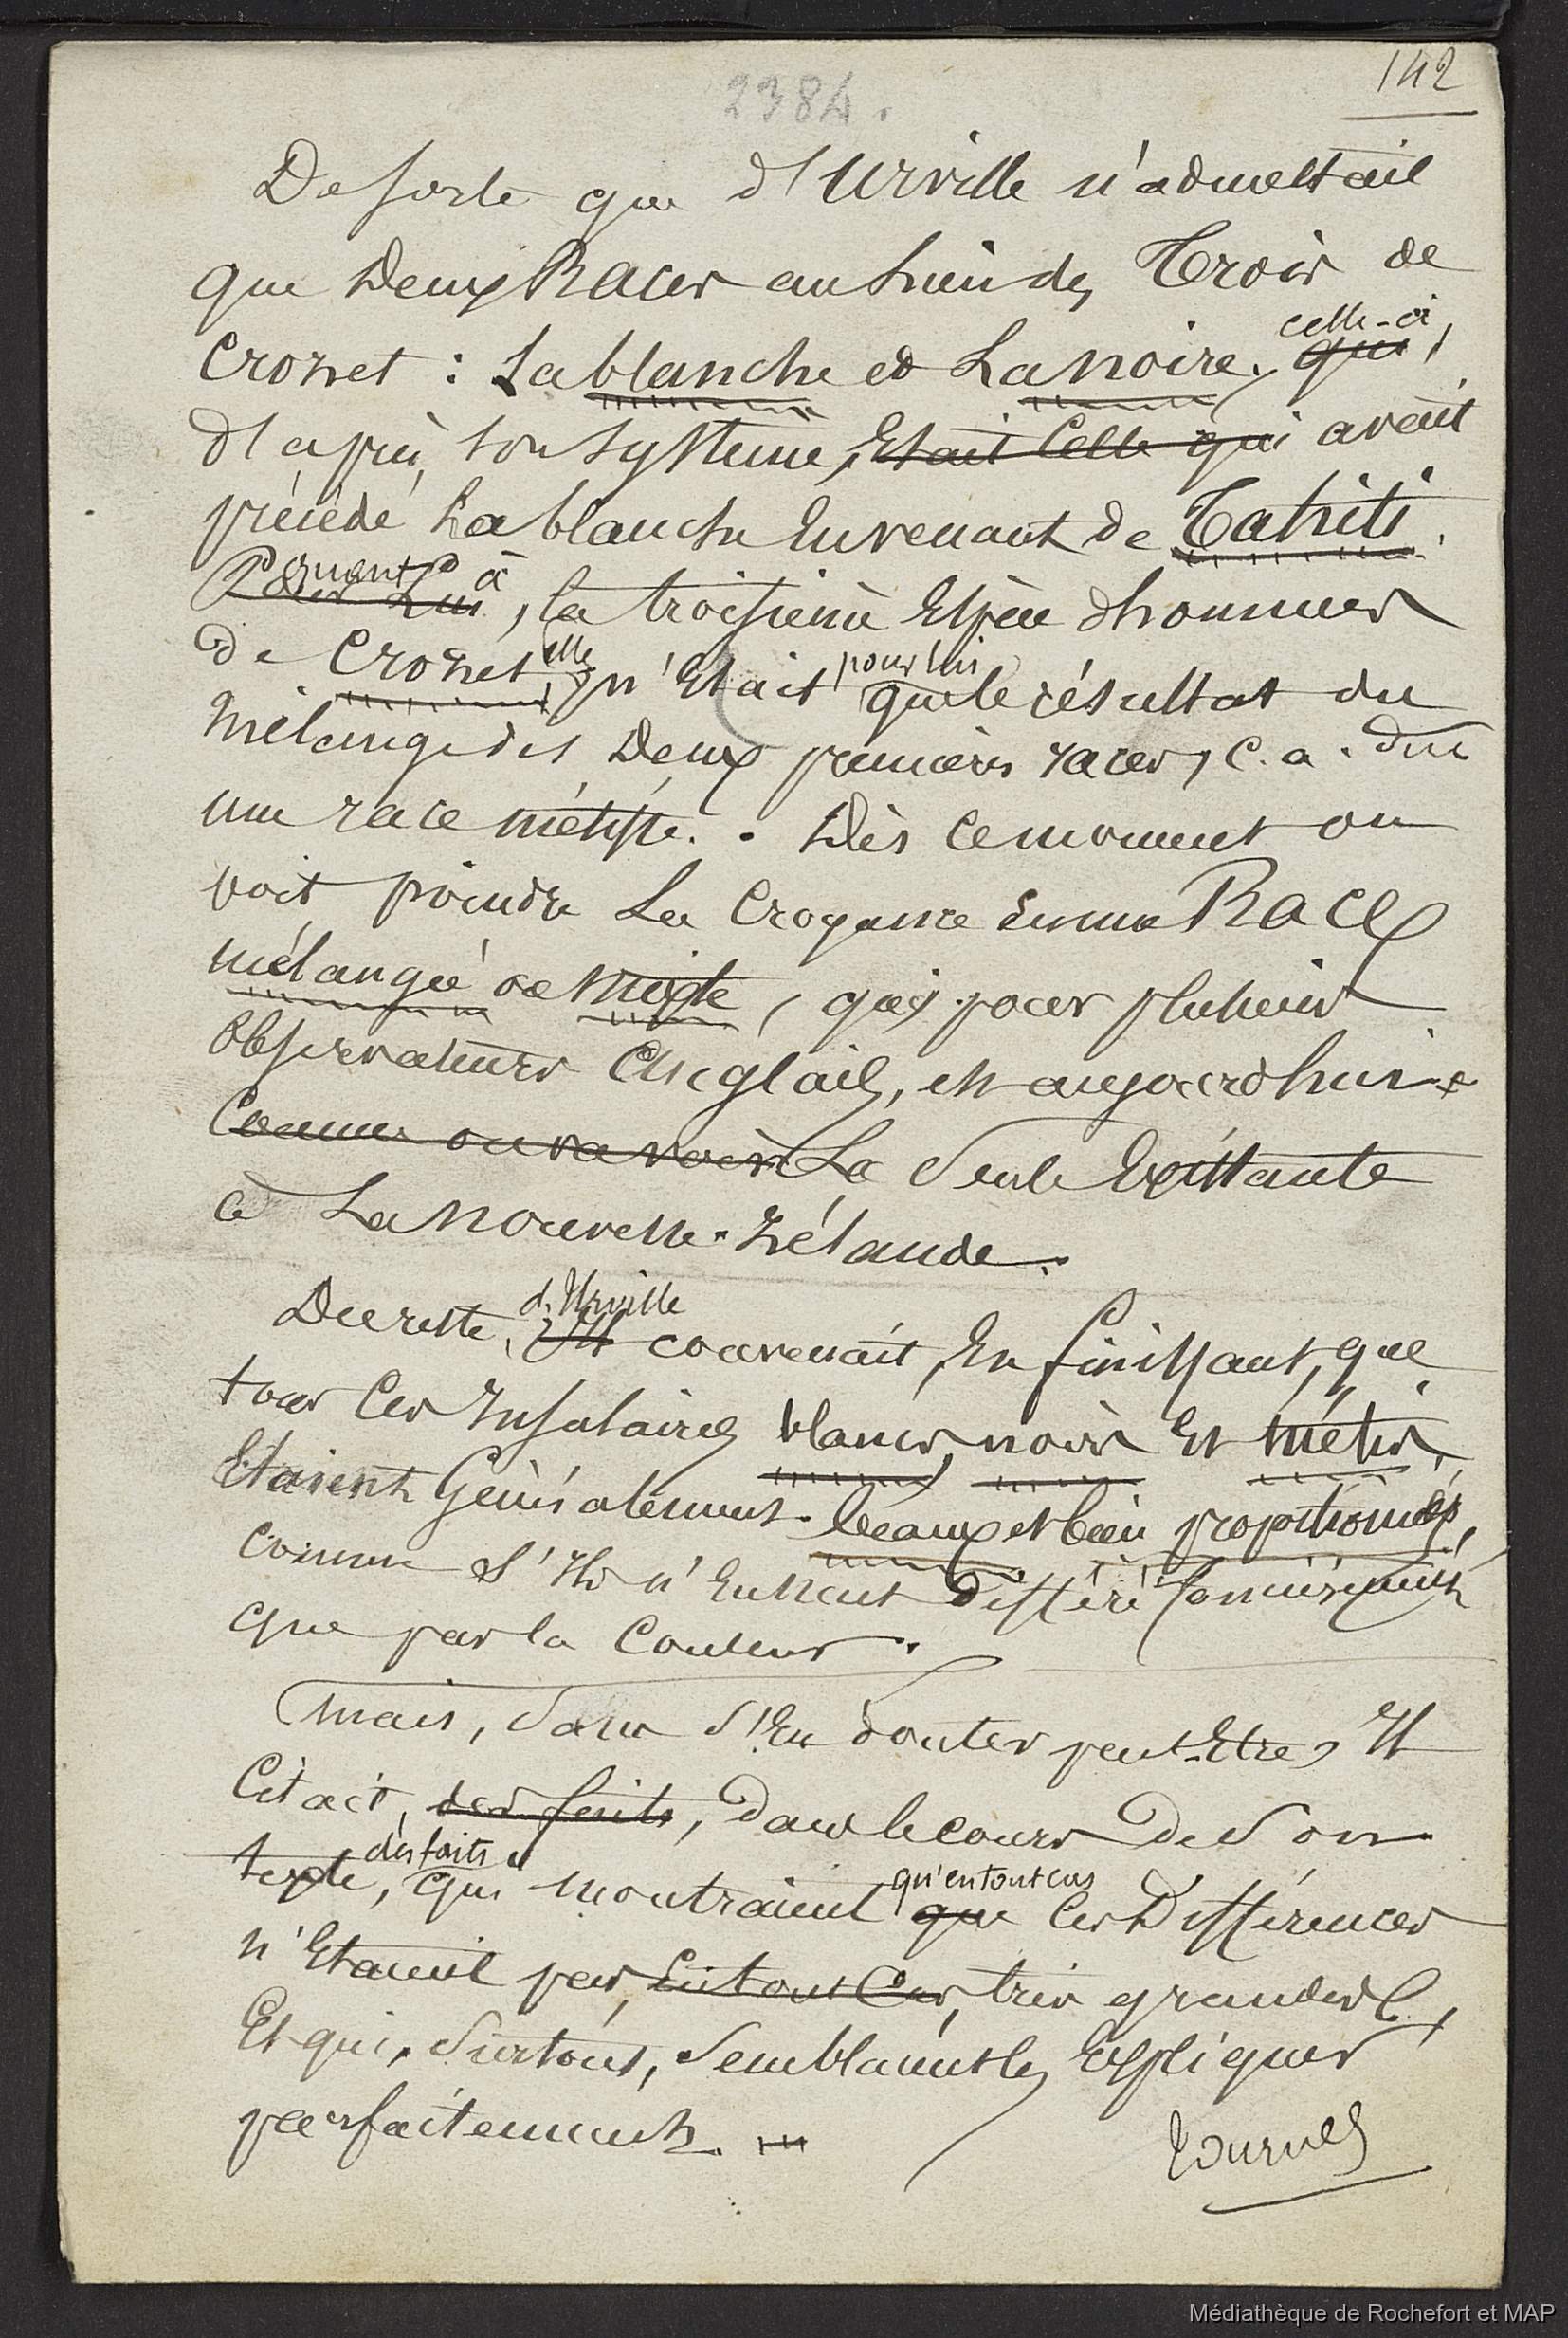 142
2384.
De sorte que d'Urville n'admettait
que Deux Races au lieu des Trois de
Crozet : La blanche et La noire, celle-ci, qui,
d'après son système, Etait Celle qui avait
précédé La blanche En venant de Tahiti.
Pour Lui quant à, la troisième Espèce d'hommes
de Crozet, elle n'Etait pour lui que le résultat du
mélange des Deux premières races, c. a. dire
une race métisse. . Dès ce moment on
voit poindre La Croyance En une Race
mélangée ou mixte, qui, pour plusieurs
observateurs Anglais, est aujourd'hui
Comme on va voir La Seule Existante
à La Nouvelle-Zélande.
Du reste, d'Urville Il convenait, En finissant, que
tous Ces Insulaires blancs, noirs Et métis,
Etaient Généralement beaux et bien proportionnés,
comme S'Ils n'Eussent différé foncièrement
que par la Couleur.
Mais, Sans S'En douter peut-Etre, Il
Citait, des faits, dans le cours de Son
texte, des faits qui montraient qu'en tout cas que Ces Différences
n'Etaient pas, En tout Cas, très grandes,
Et qui, Surtout, Semblaient les Expliquer
parfaitement.
Tournez
Médiathèque de Rochefort et MAP